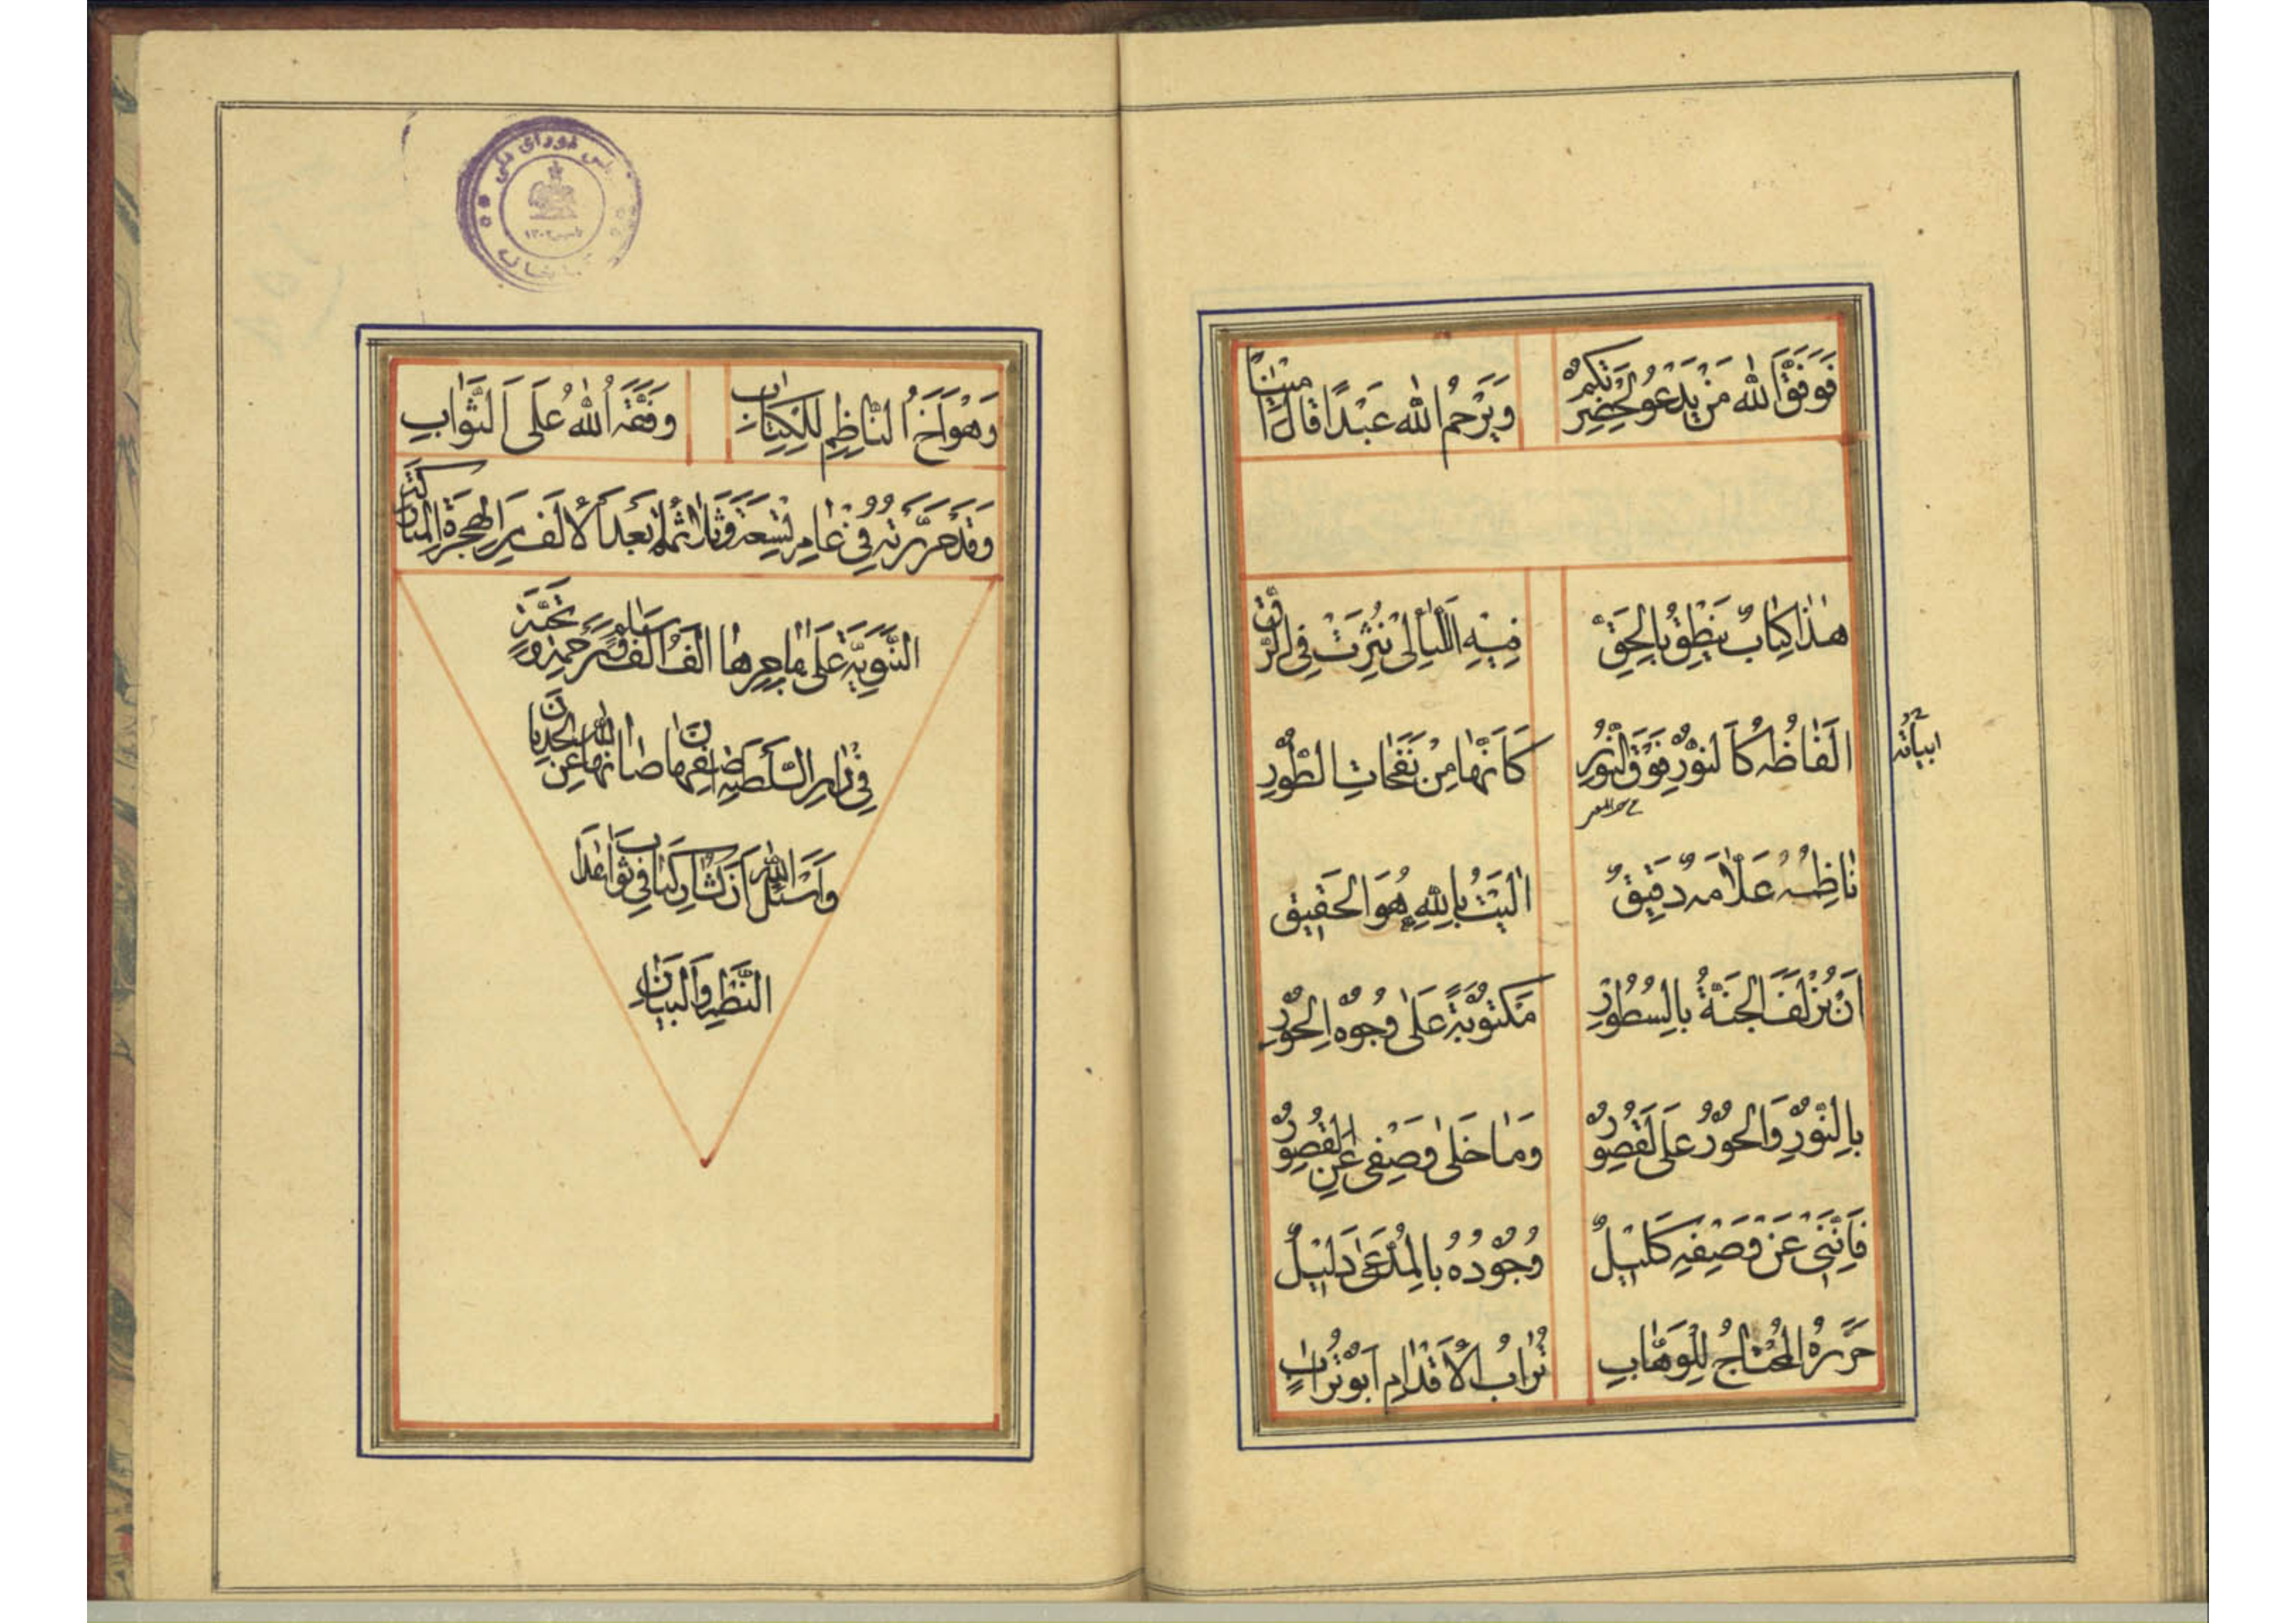 فَوَفَّقَ اللهُ مَنْ يَدْعُو لِحَضْرَتِكُمْ وَيَرْحَمُ اللهُ عَبْدًا قَالَ اٰمِيْنَا
هٰذَا كِتَابٌ يَنْطِقُ بِالْحَقِّ فِيْهِ اللَّيَالِىْ نُثِرَتْ فِى الرَّقِّ
اَلْفَاظُهُ كَالنُّوْرِ فَوْقَ النُّوْرِ كَاَنَّهَا مِنْ نَفَحَاتِ الطُّوْرِ
ابياته
نَاظِمُهُ عَلَّامَةٌ دَقِيْقٌ اَلْبَتُّ بِاللهِ هُوَ الْحَقِيْقِ
اَنْ تُزْلَفَ الْجَنَّةُ بِالسُّطُوْرِ مَكْتُوْبَةً عَلٰى وُجُوْهِ الْحُوْرِ
بِالنُّوْرِ وَالْحُوْرُ عَلَى الْقُصُوْرِ وَمَا خَلٰى وَصْفِى عَنِ الْقُصُوْرِ
فَاِنَّنِىْ عَنْ وَصْفِهِ كَلِيْلٌ وُجُوْدُهُ بِالْمُدَّعٰى دَلِيْلٌ
حَرَّرَهُ الْمُحْتَاجُ لِلْوَهَّابِ تُرَابُ الْاَقْدَامِ اَبُوْ تُرَابٍ
وَهُوَ اَخُ النَّاظِمِ لِلْكِتَابِ وَفَّقَهُ اللهُ عَلَى الثَّوَابِ
وَقَدْ حَرَّرْتُهُ فِىْ عَامِ تِسْعَةٍ وَثَلٰثُمِائَةٍ بَعْدَ الْاَلْفِ مِنَ الْهِجْرَةِ
النَّبَوِيَّةِ عَلٰى مُهَاجِرِهَا اَلْفُ اَلْفِ سَلَامٍ وَتَحِيَّةٍ
فِىْ دَارِ السَّلْطَنَةِ اِصْفَهَانَ صَانَهَا اللهُ عَنِ الْحَدَثَانِ
وَاَسْئَلُ اللهَ اَنْ يُشَارِكَنَا فِى ثَوَابِ هٰذَا
النَّظْمِ وَالْبَيَانِ
شورای ملی
۱۳۰۲